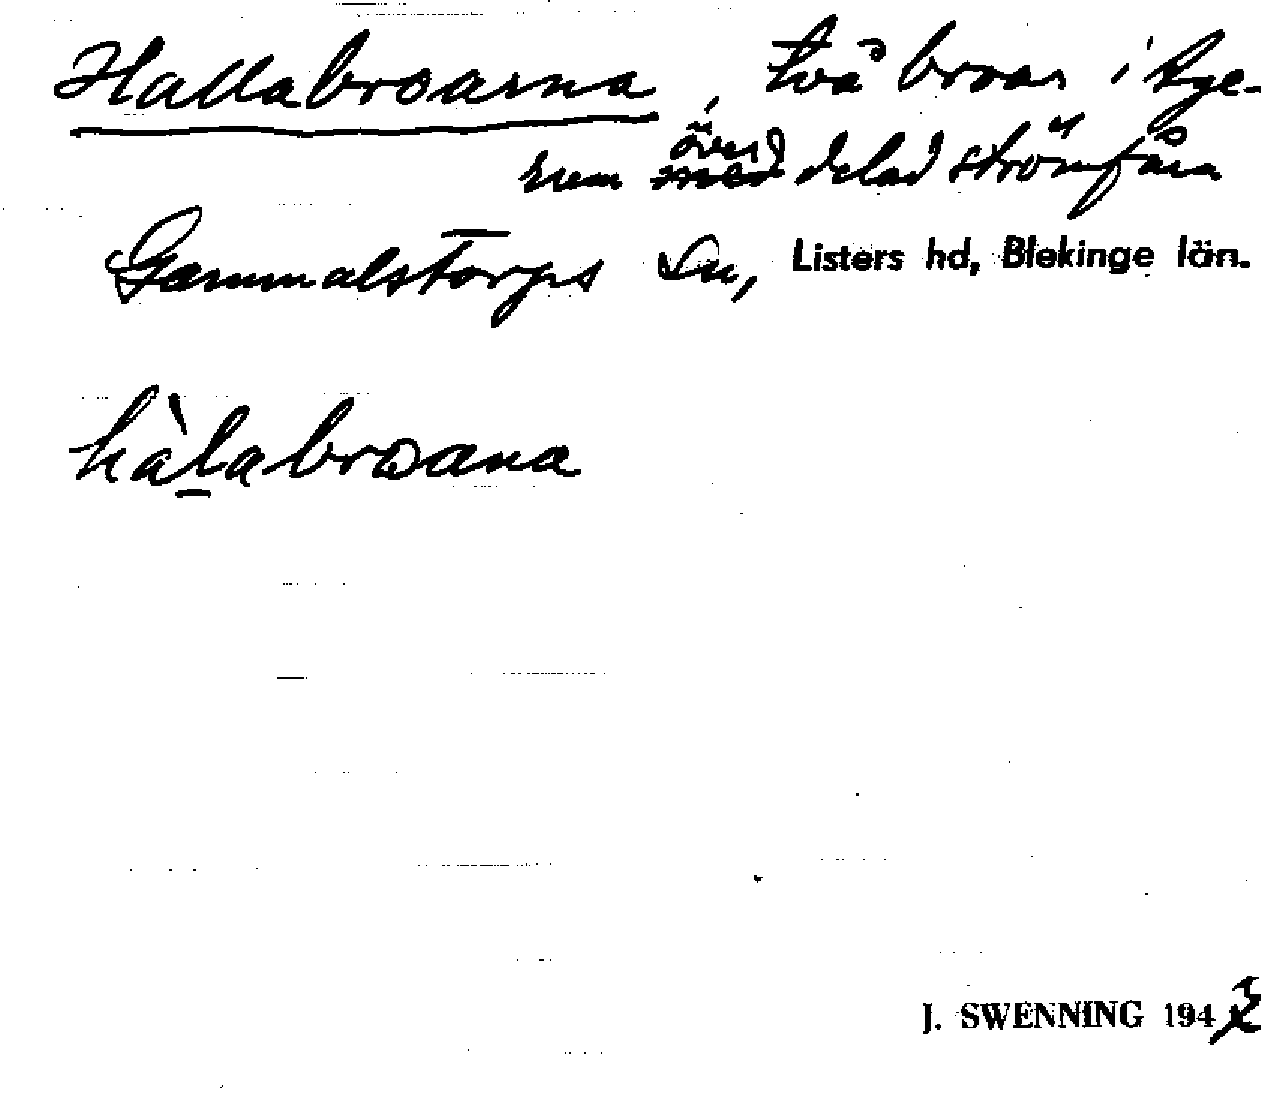 Hallabroarna, två broar i Rye-
rum över delad strömfåra
Gammalstorps sn, Listers hd, Blekinge län.
hàlabroana
J. SWENNING 194